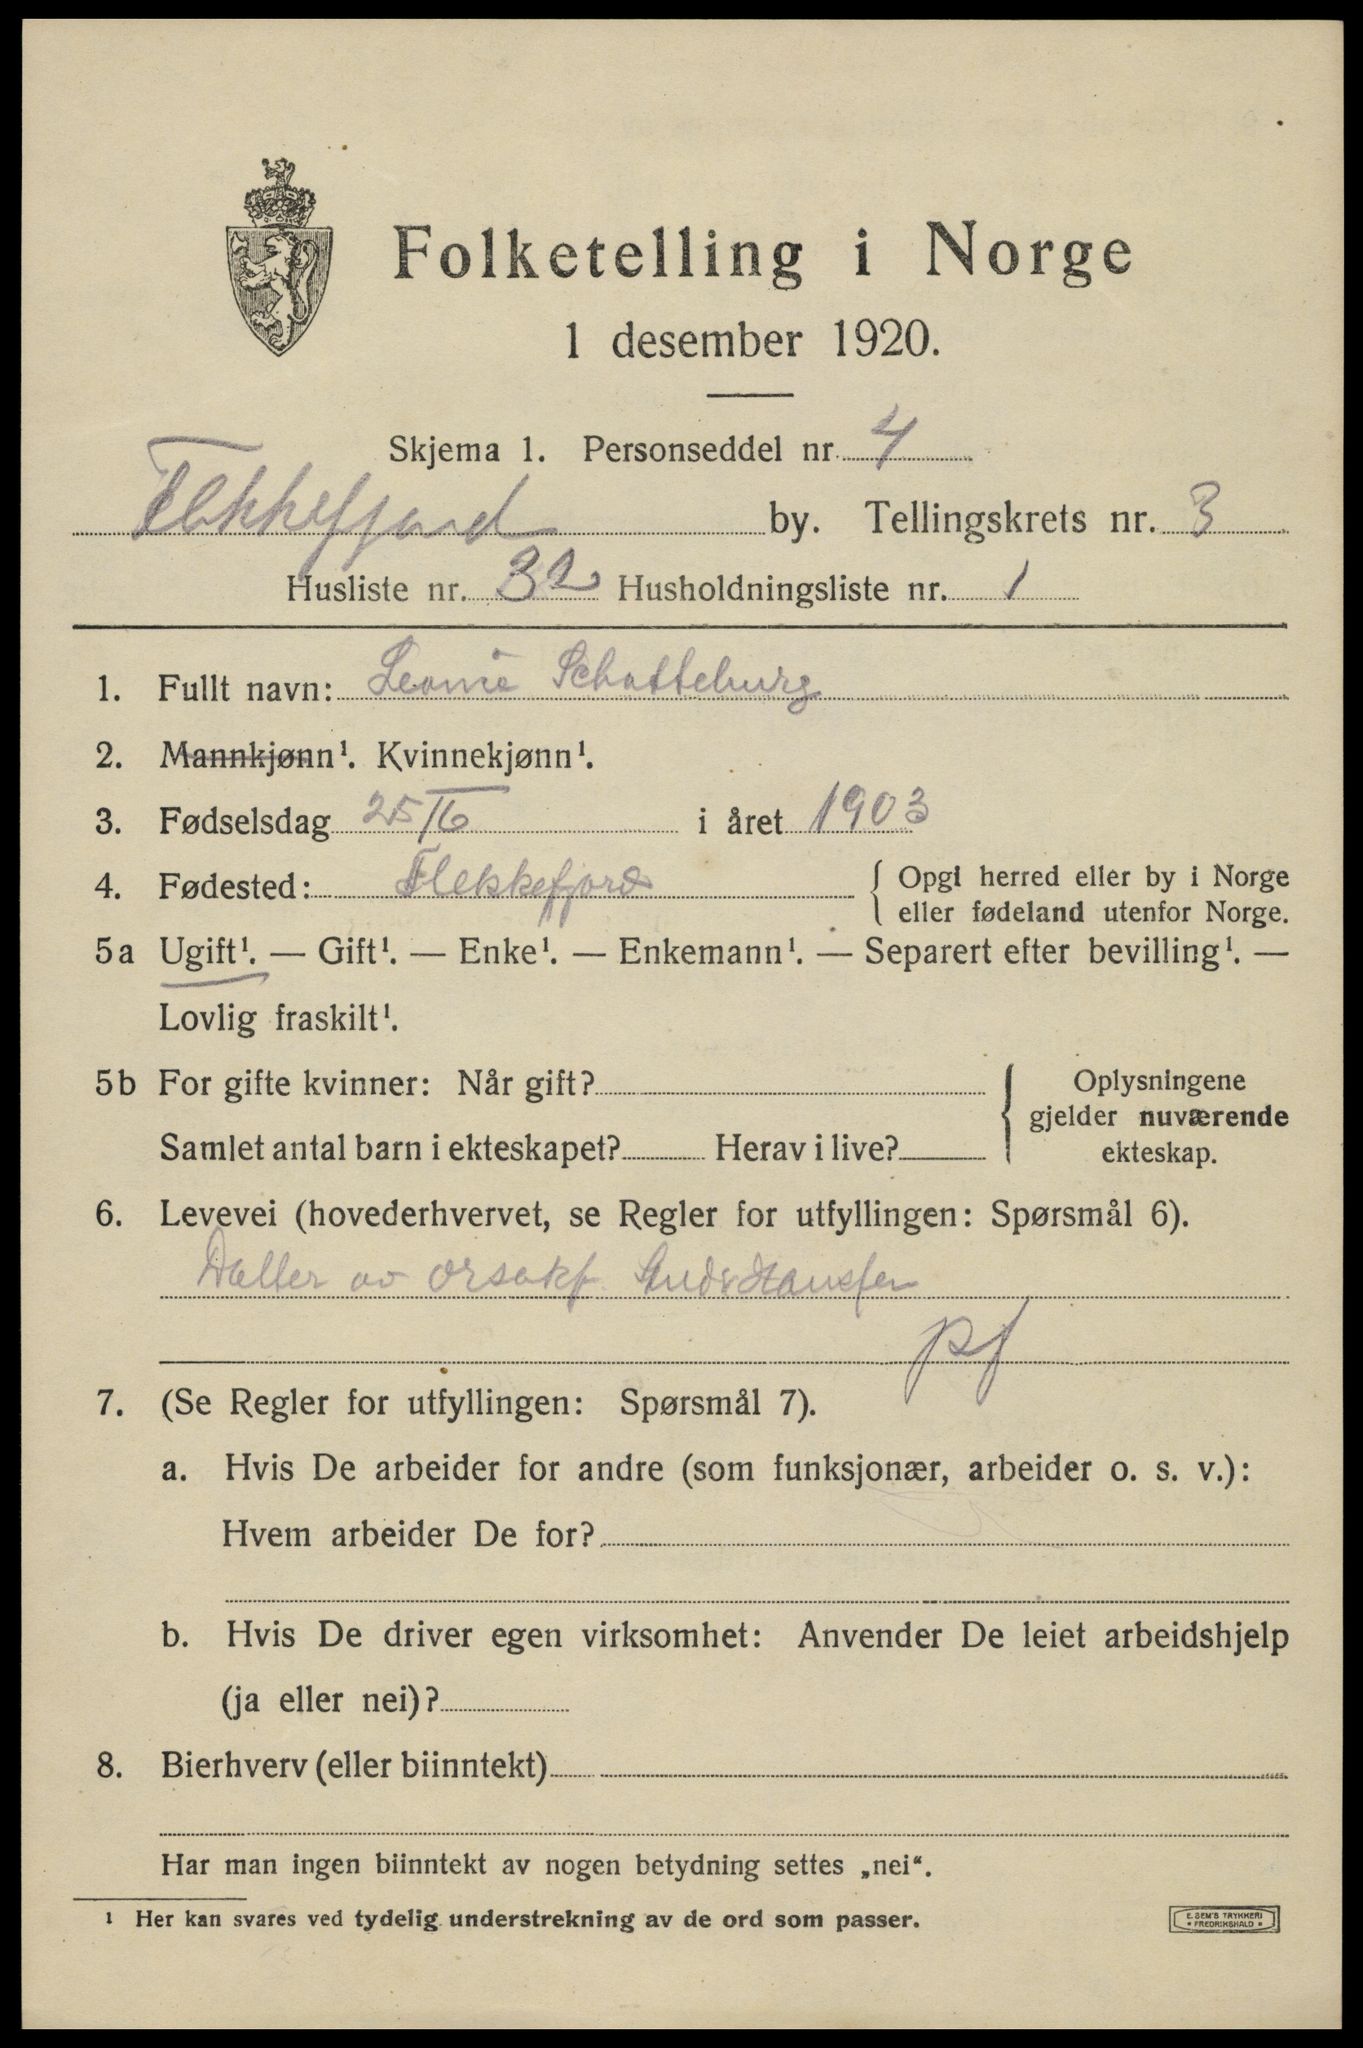 Folketelling i Norge
1 desember 1920.
Skjema 1. Personseddel nr. 4
Flekkefjord by. Tellingskrets nr. 3
Husliste nr. 32 Husholdningsliste nr. 1
1. Fullt navn: Leonie Schotteburg
2. Mannkjønn¹. Kvinnekjønn¹.
3. Fødselsdag 25/6 i året 1903
4. Fødested: Flekkefjord { Opgi herred eller by i Norge
eller fødeland utenfor Norge.
5a Ugift¹. — Gift¹. — Enke¹. — Enkemann¹. — Separert efter bevilling¹. —
Lovlig fraskilt¹.
5b For gifte kvinner: Når gift? { Oplysningene
gjelder nuværende
Samlet antal barn i ekteskapet? Herav i live? ekteskap.
6. Levevei (hovederhvervet, se Regler for utfyllingen: Spørsmål 6).
Datter av
7. (Se Regler for utfyllingen: Spørsmål 7).
a. Hvis De arbeider for andre (som funksjonær, arbeider o. s. v.):
Hvem arbeider De for?
b. Hvis De driver egen virksomhet: Anvender De leiet arbeidshjelp
(ja eller nei)?
8. Bierhverv (eller biinntekt)
Har man ingen biinntekt av nogen betydning settes „nei“.
¹ Her kan svares ved tydelig understrekning av de ord som passer.
E. SEM'S TRYKKERI
FREDRIKSHALD